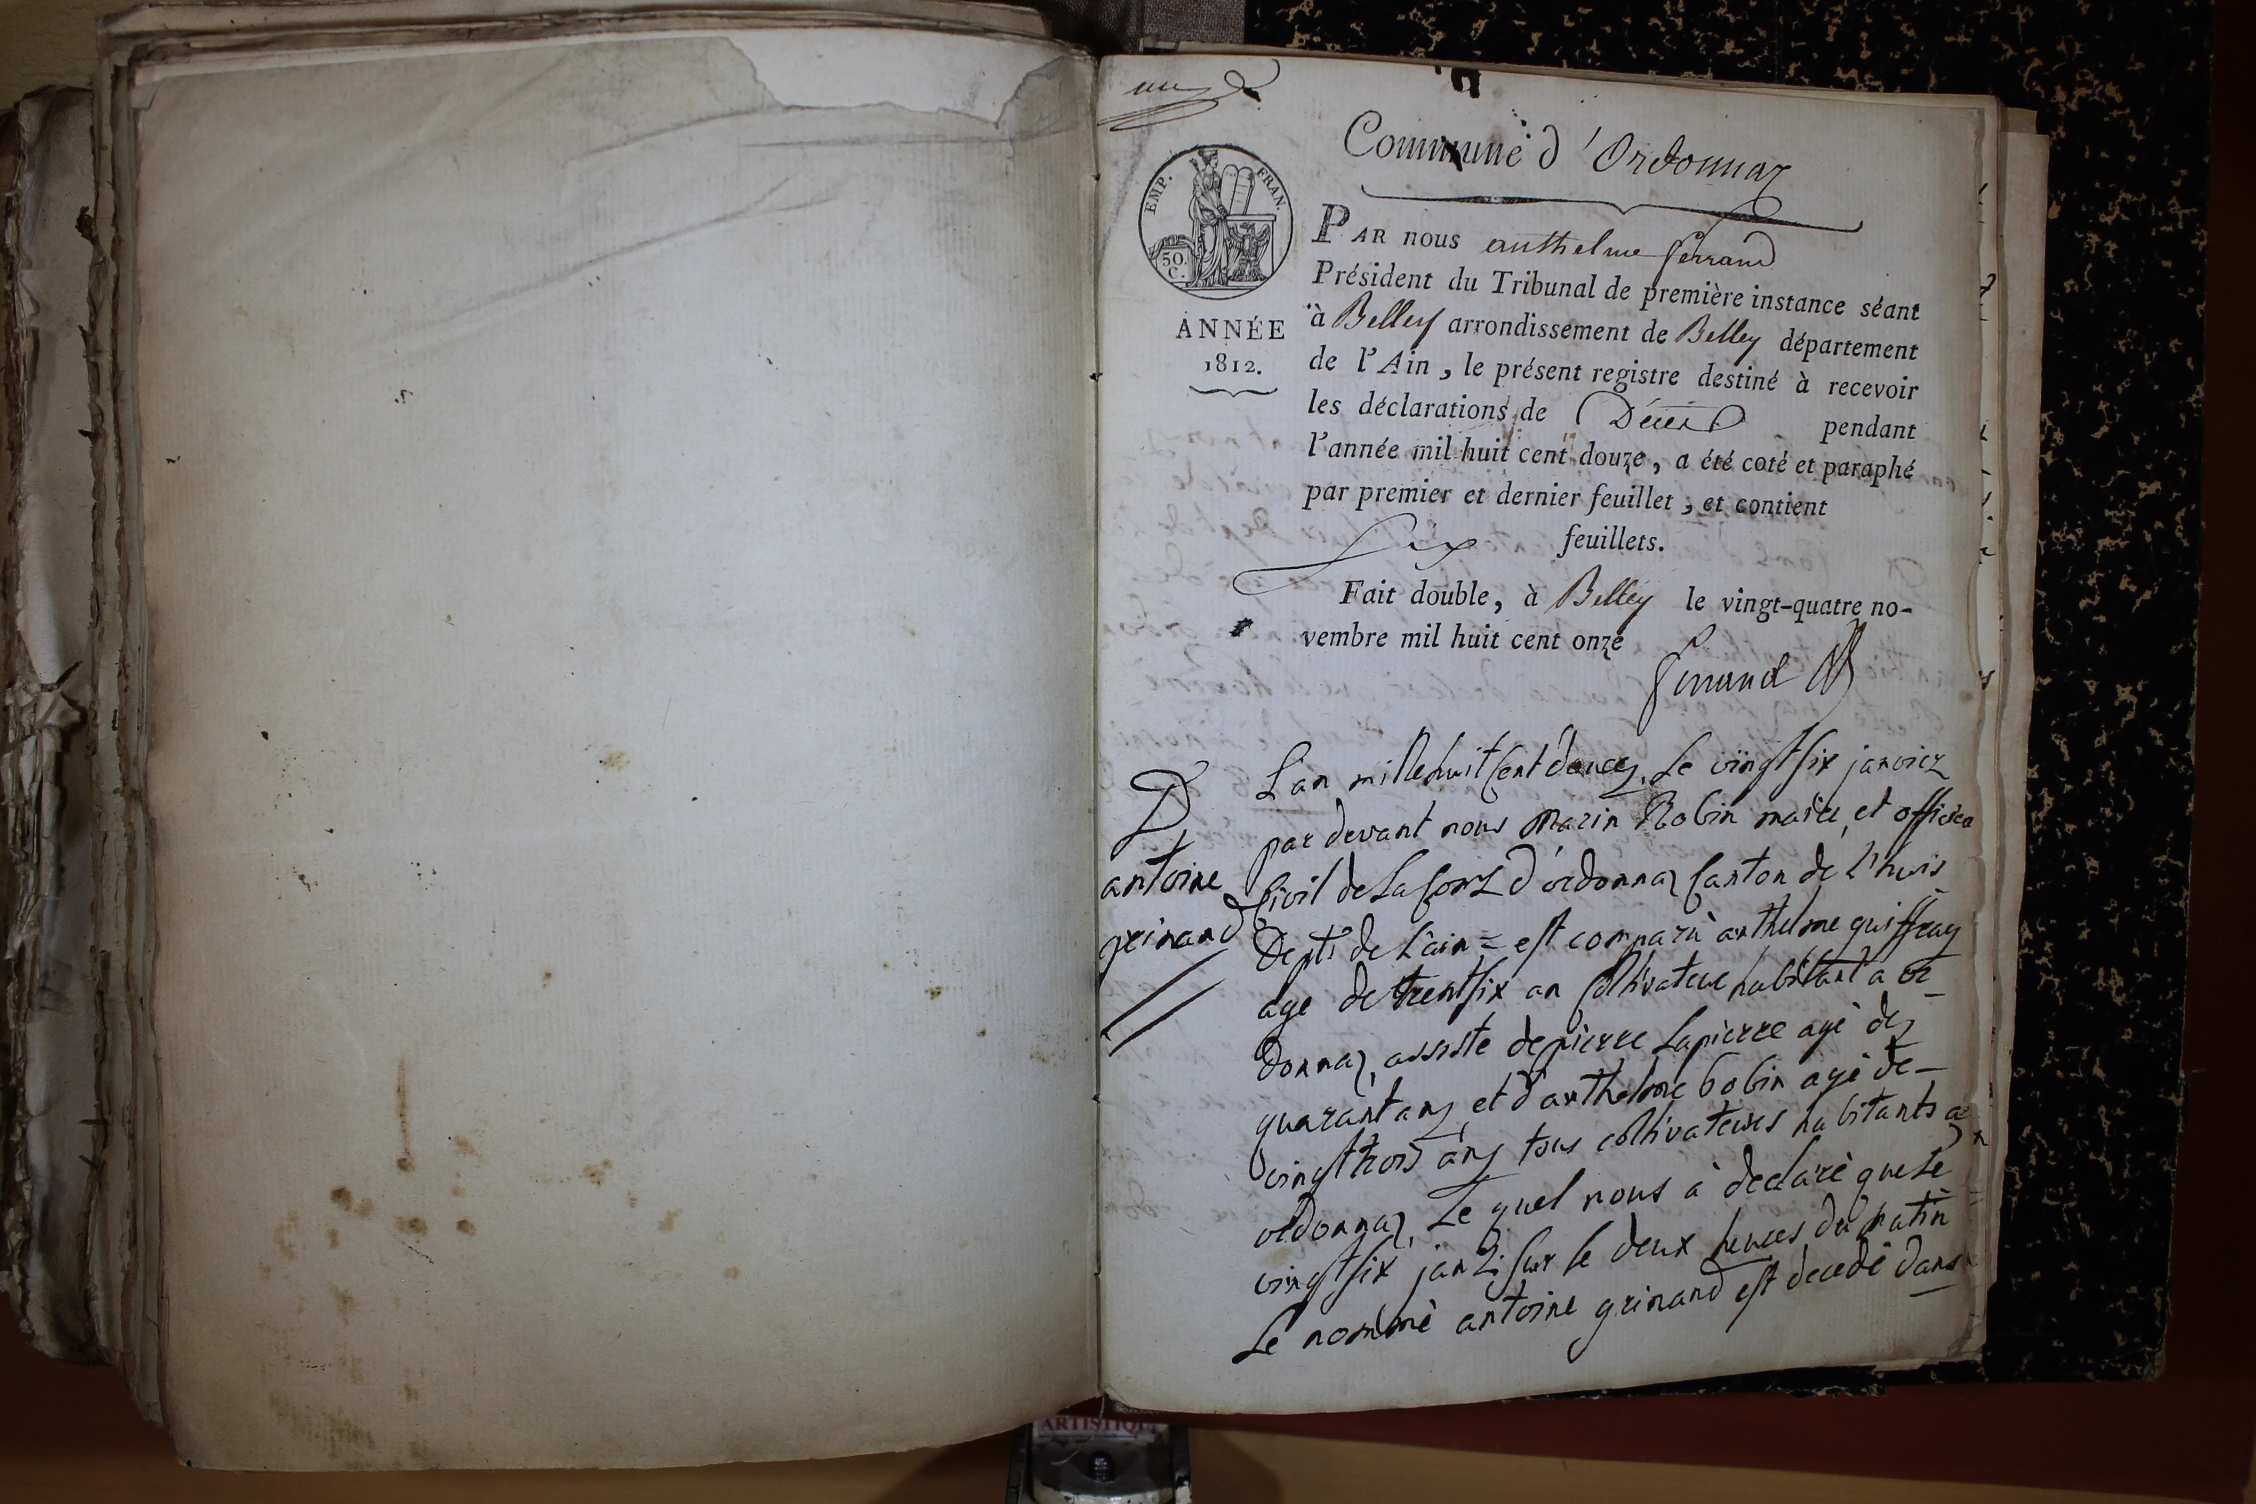 une
Commune d'Ordonnaz
EMP. FRAN.
50.
C.
ANNÉE
1812.
PAR nous anthelme ferrand
Président du Tribunal de première instance séant
à Belley arrondissement de Belley département
de l'Ain, le présent registre destiné à recevoir
les déclarations de Décès pendant
l'année mil huit cent douze, a été coté et paraphé
par premier et dernier feuillet, et contient
Six feuillets.
Fait double, à Belley le vingt-quatre no-
vembre mil huit cent onze
ferrand
D
antoine
grinand
L'an mille huit Cent douez, Le vingt Six janvier
par devant nous marin Robin maire, et officier
Civil de La Com d'ordonnaz Canton de L'huis
Dept de L'ain = est comparu anthelme guiffray
age de trent Six an Coltivateur habitant a or_
donnaz, assiste de pierre Lapierre agé de
quarant ans, et d'anthelme bobin agé de_
vingt trois ans tous coltivateurs habitants a
ordonnaz, Le quel nous à declaré que Le
vingt Six janv Sur le deux heures du matin
Le nommé antoine grinand est decedé dans
ARTISTIQU